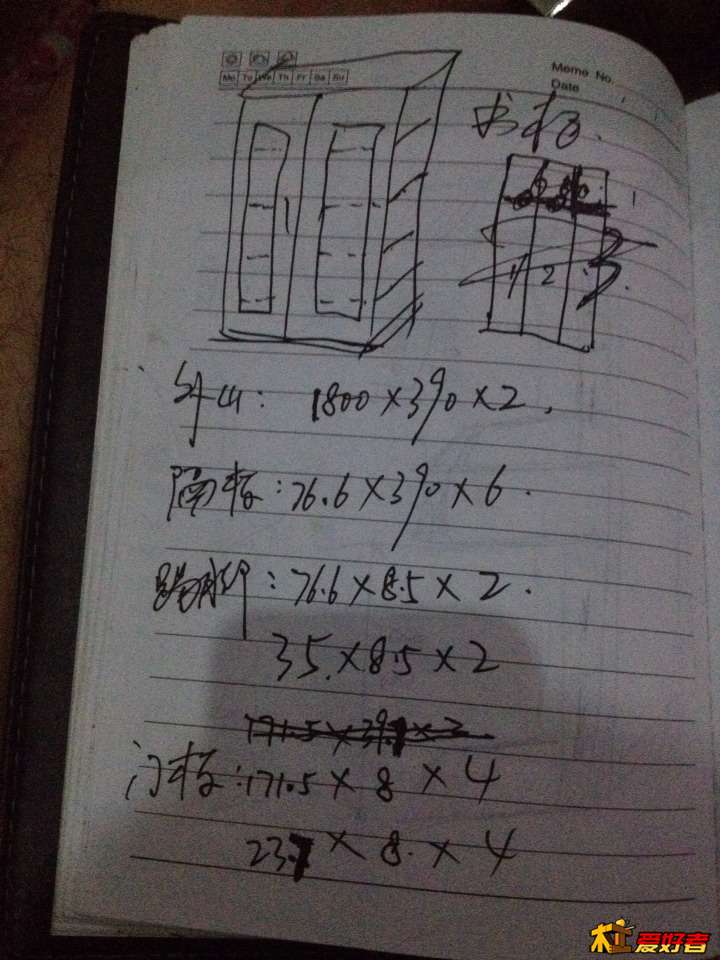 Memo No.
Mo Tu We Th Fr Sa Su
Date
书柜.
1
1 2 3.
外山: 1800×390×2.
隔板: 76.6×390×6.
踢脚: 76.6×8.5×2.
35.×8.5×2
171.5×39.1×2
门板: 171.5×8×4
23.7×8.×4
木工爱好者